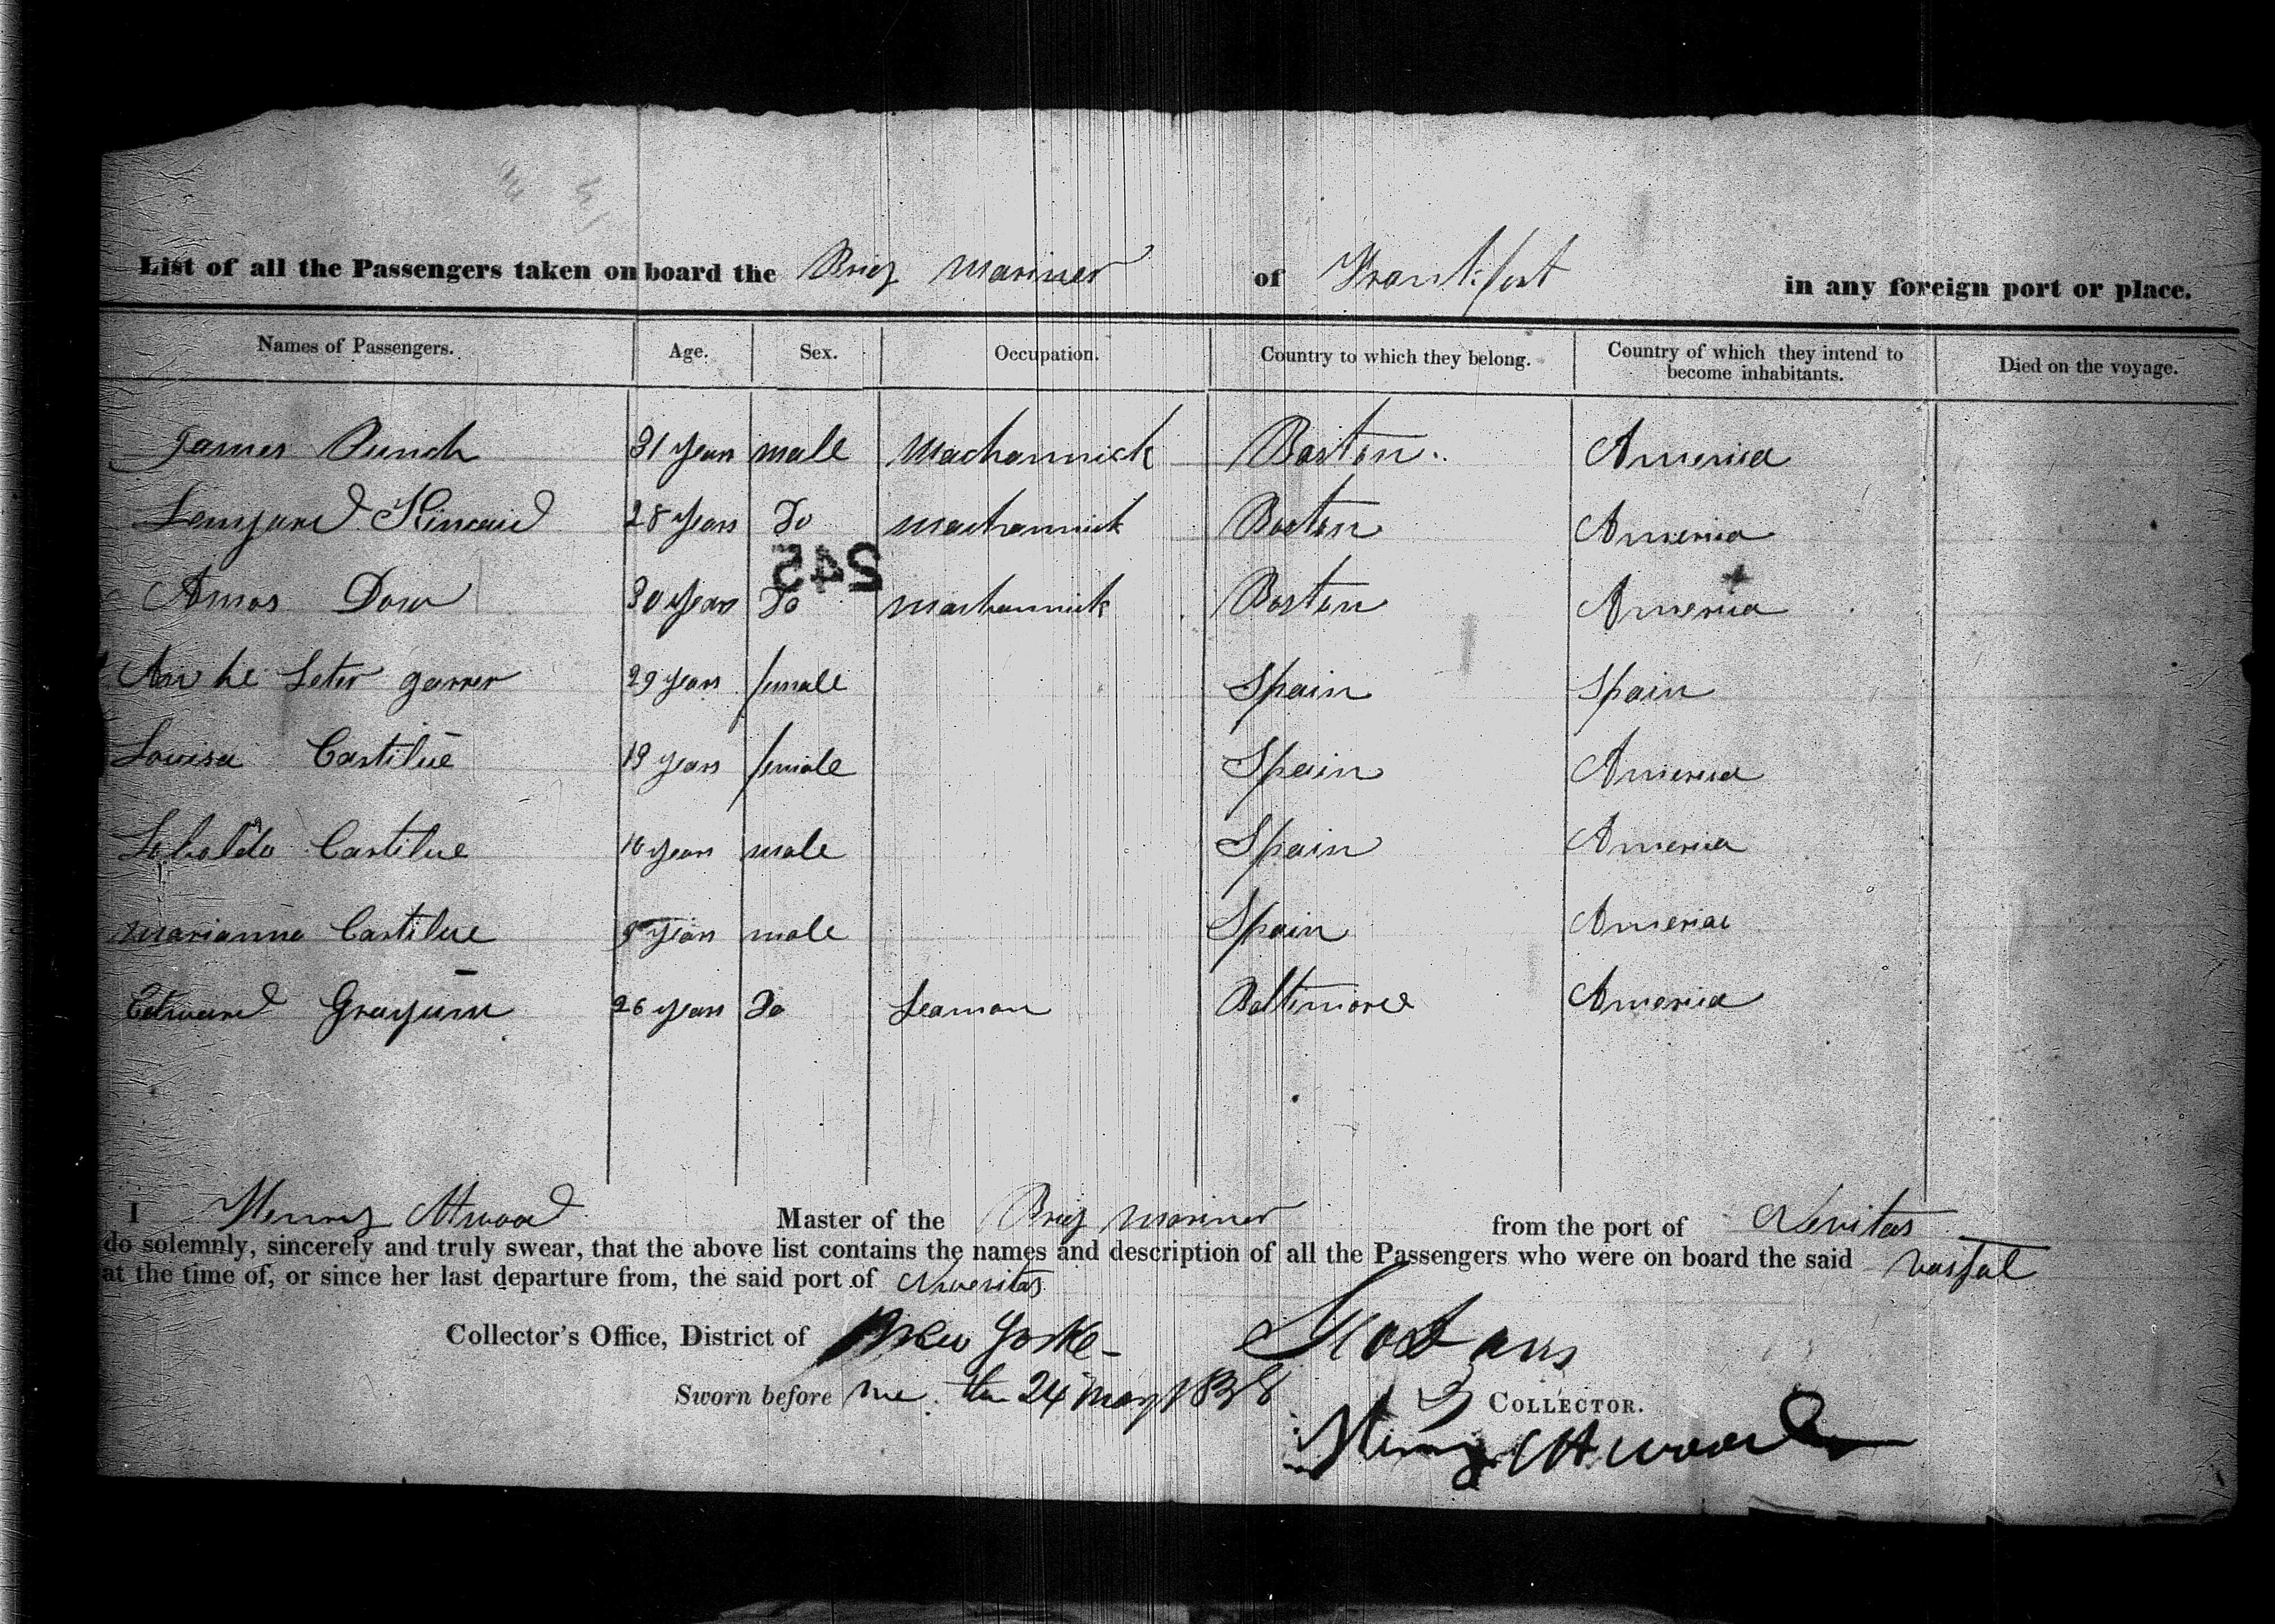 List of all the Passengers taken on board the Brig Mariner of Frankfort in any foreign port or place.
Names of Passengers. Age. Sex. Occupation. Country to which they belong. Country of which they intend to become inhabitants. Died on the voyage.
James Punch 31 years male Machannick Boston. America
Kincaid 28 years Do machannick Boston America
245
Amos Dow 30 years Do machannick Boston America
29 years female Spain Spain
Louisa Castilue 19 years female Spain America
Castilue 10 years male Spain America
Marianna Castilue years male Spain America
Edward Grayum 26 years Do Seaman Baltimore America
I Henry Atwood Master of the Brig Mariner from the port of Nevitas
do solemnly, sincerely and truly swear, that the above list contains the names and description of all the Passengers who were on board the said
at the time of, or since her last departure from, the said port of Nuevitas
Collector's Office, District of New York
Sworn before me. the 24 May 1838
COLLECTOR.
Henry Atwood